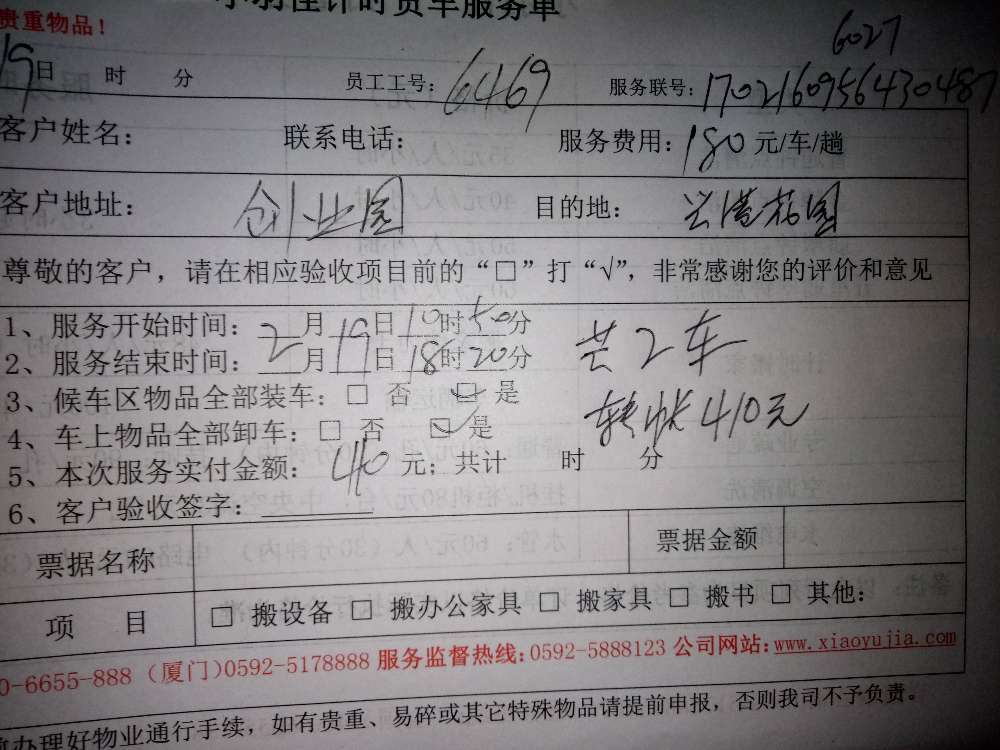 计时货车服务单
贵重物品！
6027
19日 时 分 员工工号：6469 服务联号：1702160956430487
客户姓名： 联系电话： 服务费用：180元/车/趟
客户地址：创业园 目的地：
尊敬的客户，请在相应验收项目前的“□”打“√”，非常感谢您的评价和意见
1、服务开始时间：2月19日10时50分
2、服务结束时间：2月19日18时20分
共2车
3、候车区物品全部装车：□ 否 ☑ 是
转帐410元
4、车上物品全部卸车：□ 否 ☑ 是
5、本次服务实付金额：410元；共计 时 分
6、客户验收签字：
票据名称 票据金额
项 目 □ 搬设备 □ 搬办公家具 □ 搬家具 □ 搬书 □ 其他：
0-6655-888（厦门）0592-5178888 服务监督热线：0592-5888123 公司网站：www.xiaoyujia.com
办理好物业通行手续，如有贵重、易碎或其它特殊物品请提前申报，否则我司不予负责。